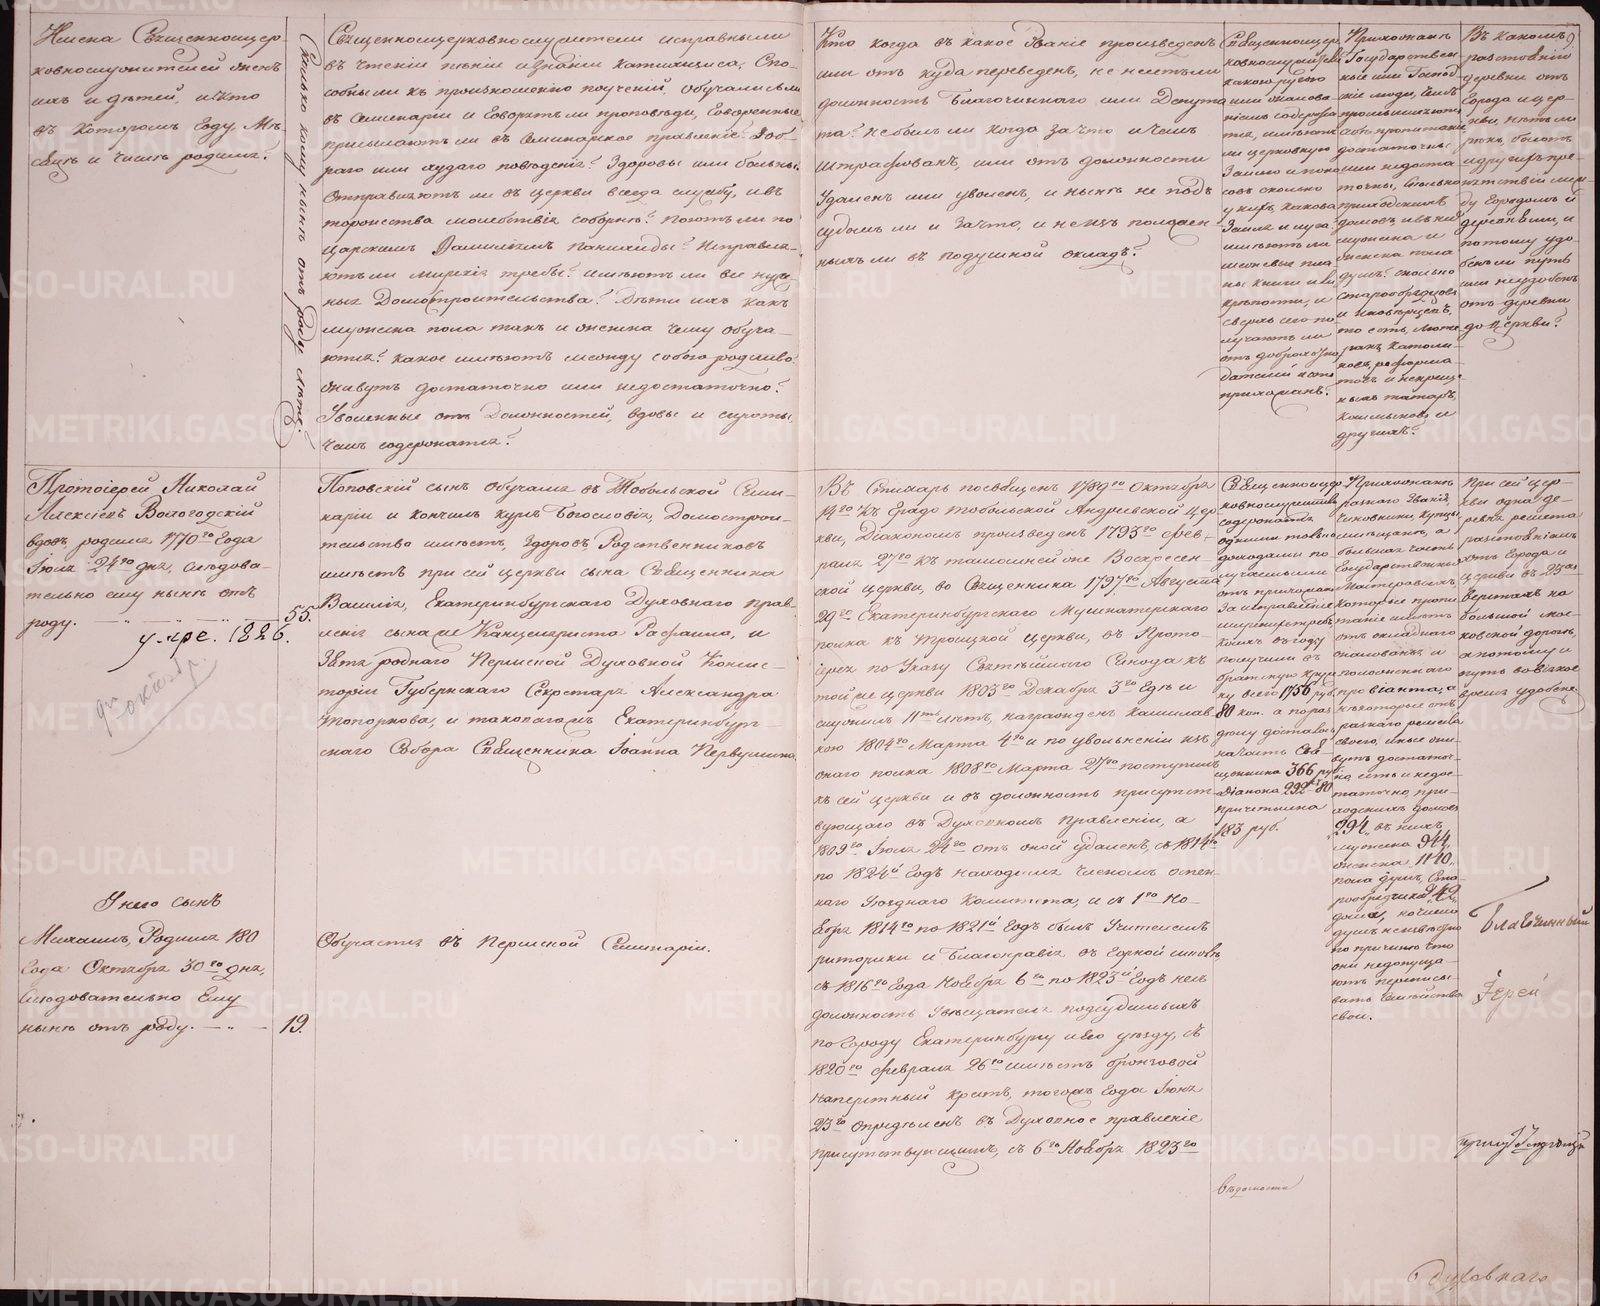 Имена Священноцер-
ковнослужителей женъ
ихъ и дѣтей, и кто
въ которомъ году, мѣ-
сяцѣ и числѣ родился?
Сколько кому нынѣ отъ роду лѣтъ?
Священноцерковнослужители исправныли
въ чтеніи пѣніи и знаніи катихизиса, Спо-
собныли къ произношенію поученій, обучалисьли
въ Семинаріи и говорятъ ли проповѣди, говоренные
присылаютъ ли въ Семинарское правленіе? Доб-
раго или худаго поведенія? Здоровы или больны?
Отправляютъ ли въ церкви всегда службу, и въ
торжества молебствія соборнѣ? Поютъ ли по
Царскимъ Фамиліямъ панихиды? Исправля-
ютъ ли мирскія требы? имѣютъ ли все нуж-
ныя Домостроительства? Дѣти ихъ какъ
мужеска пола такъ и женска чему обуча-
ются? какое имѣютъ между собою родство?
живутъ достаточно или недостаточно?
Уволенные отъ Должностей, вдовы и сироты,
чемъ содержатся?
Кто когда въ какое званіе произведенъ
или отъ куда переведенъ, не имѣетъ ли
должность Благочиннаго или Депута
та? не былъ ли когда за что и чемъ
Штрафованъ, или отъ должности
Удаленъ или уволенъ, и нынѣ не подъ
судомъ ли и за что, и не изъ положен-
ныхъ ли въ подушной окладъ?
Священноцер-
ковнослужители
какою ругою
или жалова-
ніемъ содержа-
тся, имѣютъ
ли церковную
Землю и поко-
совъ сколько
у нихъ, какова
Земля и луга,
имѣютъ ли
межевые пла-
ны книги и ли
крѣпости, и
сверхъ сего по-
лучаютъ ли
отъ доброхотно
дателей и отъ
прихожанъ?
Прихожанъ
Государствен-
ные или Господ-
скіе люди, чемъ
промышляютъ
себѣ пропитаніи
достаточны
или недоста-
точны, сколько
приходскихъ
домовъ и въ нихъ
мужеска и
женска пола
душъ? сколько
старообрядцовъ
и иновѣрцевъ,
то есть, люте-
ранъ, католи-
ковъ, реформа-
товъ и некреще-
ныхъ татаръ,
Калмыковъ и
другихъ?
Въ какомъ
разстояніи
деревни отъ
Города и цер-
кви, нѣтъ ли
рѣкъ, болотъ
и другихъ пре-
пятствій меж-
ду Городомъ и
деревнями, и
потому удо-
бенъ ли путь
или неудобенъ
отъ деревни
до Церкви?
Протоіерей Николай
Алексѣевъ Вологодскій
вдовъ, родился 1770го Года
Іюля 24го дня, слѣдова-
тельно ему нынѣ отъ
роду. — „ — „ — 55.
умре. 1826.
9го октября
Поповскій сынъ обучался въ Тобольской Семи-
наріи и кончилъ курсъ Богословія, Домострои-
тельство имѣетъ, Здоровъ, Родственниковъ
имѣетъ при сей церкви сына Священника
Василія, Екатеринбургскаго Духовнаго прав-
ленія сына же Канцеляриста Рафаила, и
Зятя роднаго Пермской Духовной Консис-
торіи Губернскаго Секретаря Александра
Топоркова, и таковагожъ Екатеринбург-
скаго Собора Священника Іоанна Первушина
Въ Стихарь посвященъ 1789го Октября
14го къ Градо Тобольской Андреевской цер-
кви, Діакономъ произведенъ 1793го Фев-
раля 27го къ тамошней же Воскресен-
ской церкви, во Священника 1797го Августа
29го Екатеринбургскаго Мушкатерскаго
полка къ Троицкой церкви, въ Прото-
іерея по Указу Святѣйшаго Синода къ
той же церкви 1803го Декабря 3го гдѣ и
служилъ 11ть лѣтъ, награжденъ камилав-
кою 1804го Марта 4го и по увольненіи изъ
онаго полка 1808го Марта 27го поступилъ
къ сей церкви и въ должность присутст-
вующаго въ Духовномъ Правленіи, а
1809го Іюля 24го отъ оной удаленъ, съ 1814го
по 1824й Годъ находился членомъ оспен-
наго Уѣзднаго Комитета, и съ 1го Но-
ября 1814го по 1821й Годъ былъ Учителемъ
риторики и Благонравія въ Горной школѣ
съ 1816го Года Ноября 6го по 1823й Годъ несъ
должность Увѣщателя подсудимыхъ
по Городу Екатеринбургу и Его уѣзду, съ
1820го Февраля 26го имѣетъ бронзовой
наперстный крестъ, тогожъ Года Іюня
23го опредѣленъ въ Духовное правленіе
присутствующимъ, съ 6го Ноября 1823го
Священноцер-
ковнослужители
содержатся
одними токмо
доходами по
лучаемыми
отъ прихожанъ
За исправленіе
мирскихъ требъ
коихъ въ году
получили въ
братскую круж-
ку всего 1756 руб.
80 коп. а по раз
дѣлу досталось
на часть Свя-
щенника 366 руб.
Діакона 292 80
причетника
183 руб.
вѣдомости
Прихожане
разнаго Званія,
Чиновники, купцы
мѣщане, а
большая часть
Государственныхъ
Мастеровыхъ
которые пропи-
таніе имѣютъ
отъ окладнаго
жалованья и
положеннаго
провіанта, а
нѣкоторые отъ
разнаго ремесла
своего, иные жи-
вутъ достаточ-
но, есть и недос-
таточно, при-
ходскихъ домовъ
„294„ въ нихъ
мужска 944„
женска 1140„
пола душъ, Ста-
рообрядческихъ 42
дома, но число
душъ неизвѣстно
по причинѣ что
они недопуща-
ютъ переписы-
вать Семѣйства
свои.
При сей цер-
кви одна де-
ревня решета
разстояніемъ
отъ Города и
церкви въ 23хъ
верстахъ на
большой мос-
ковской дорогѣ,
а потому и
путь во всякое
время удобенъ.
У него сынъ
Михаилъ, Родился 180
Года Октября 30го дня,
слѣдовательно Ему
нынѣ отъ роду. — „ — 19.
Обучается въ Пермской Семинаріи.
Благочинный
Іерей
Духовнаго